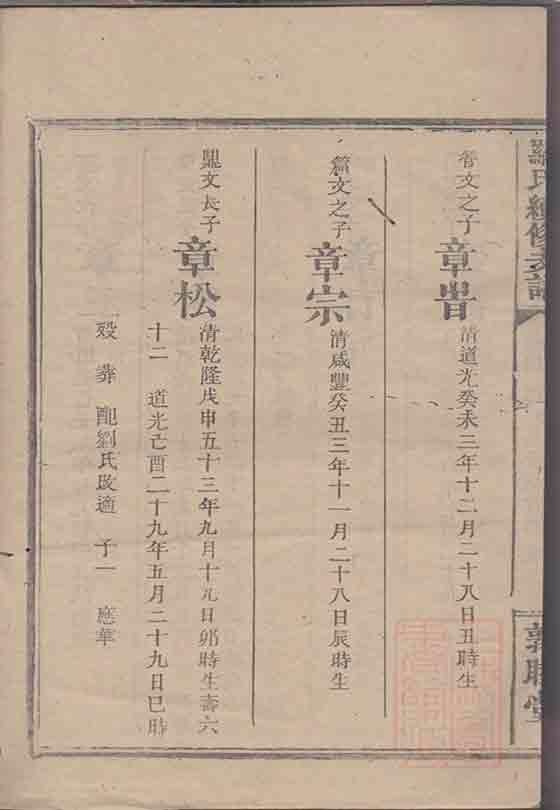 羅氏續修支譜
敦睦堂
文之子
章
清道光癸未三年十二月二十八日丑時生
文之子
章宗
清咸豐癸丑三年十一月二十八日辰時生
文長子
章松
清乾隆戊申五十三年九月十九日卯時生壽六
十二 道光己酉二十九年五月二十九日巳時
歿 葬 配劉氏改適 子一 應華